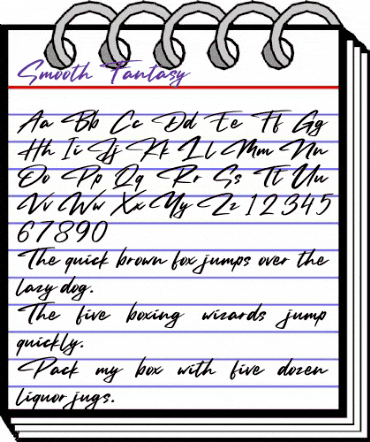 Smooth Fantasy
Aa Bb Cc Dd Ee Ff Gg
Hh Ii Jj Kk Ll Mm Nn
Oo Pp Qq Rr Ss Tt Uu
Vv Ww Xx Yy Zz 1 2 3 4 5
6 7 8 9 0
The quick brown fox jumps over the
lazy dog.
The five boxing wizards jump
quickly.
Pack my box with five dozen
liquor jugs.